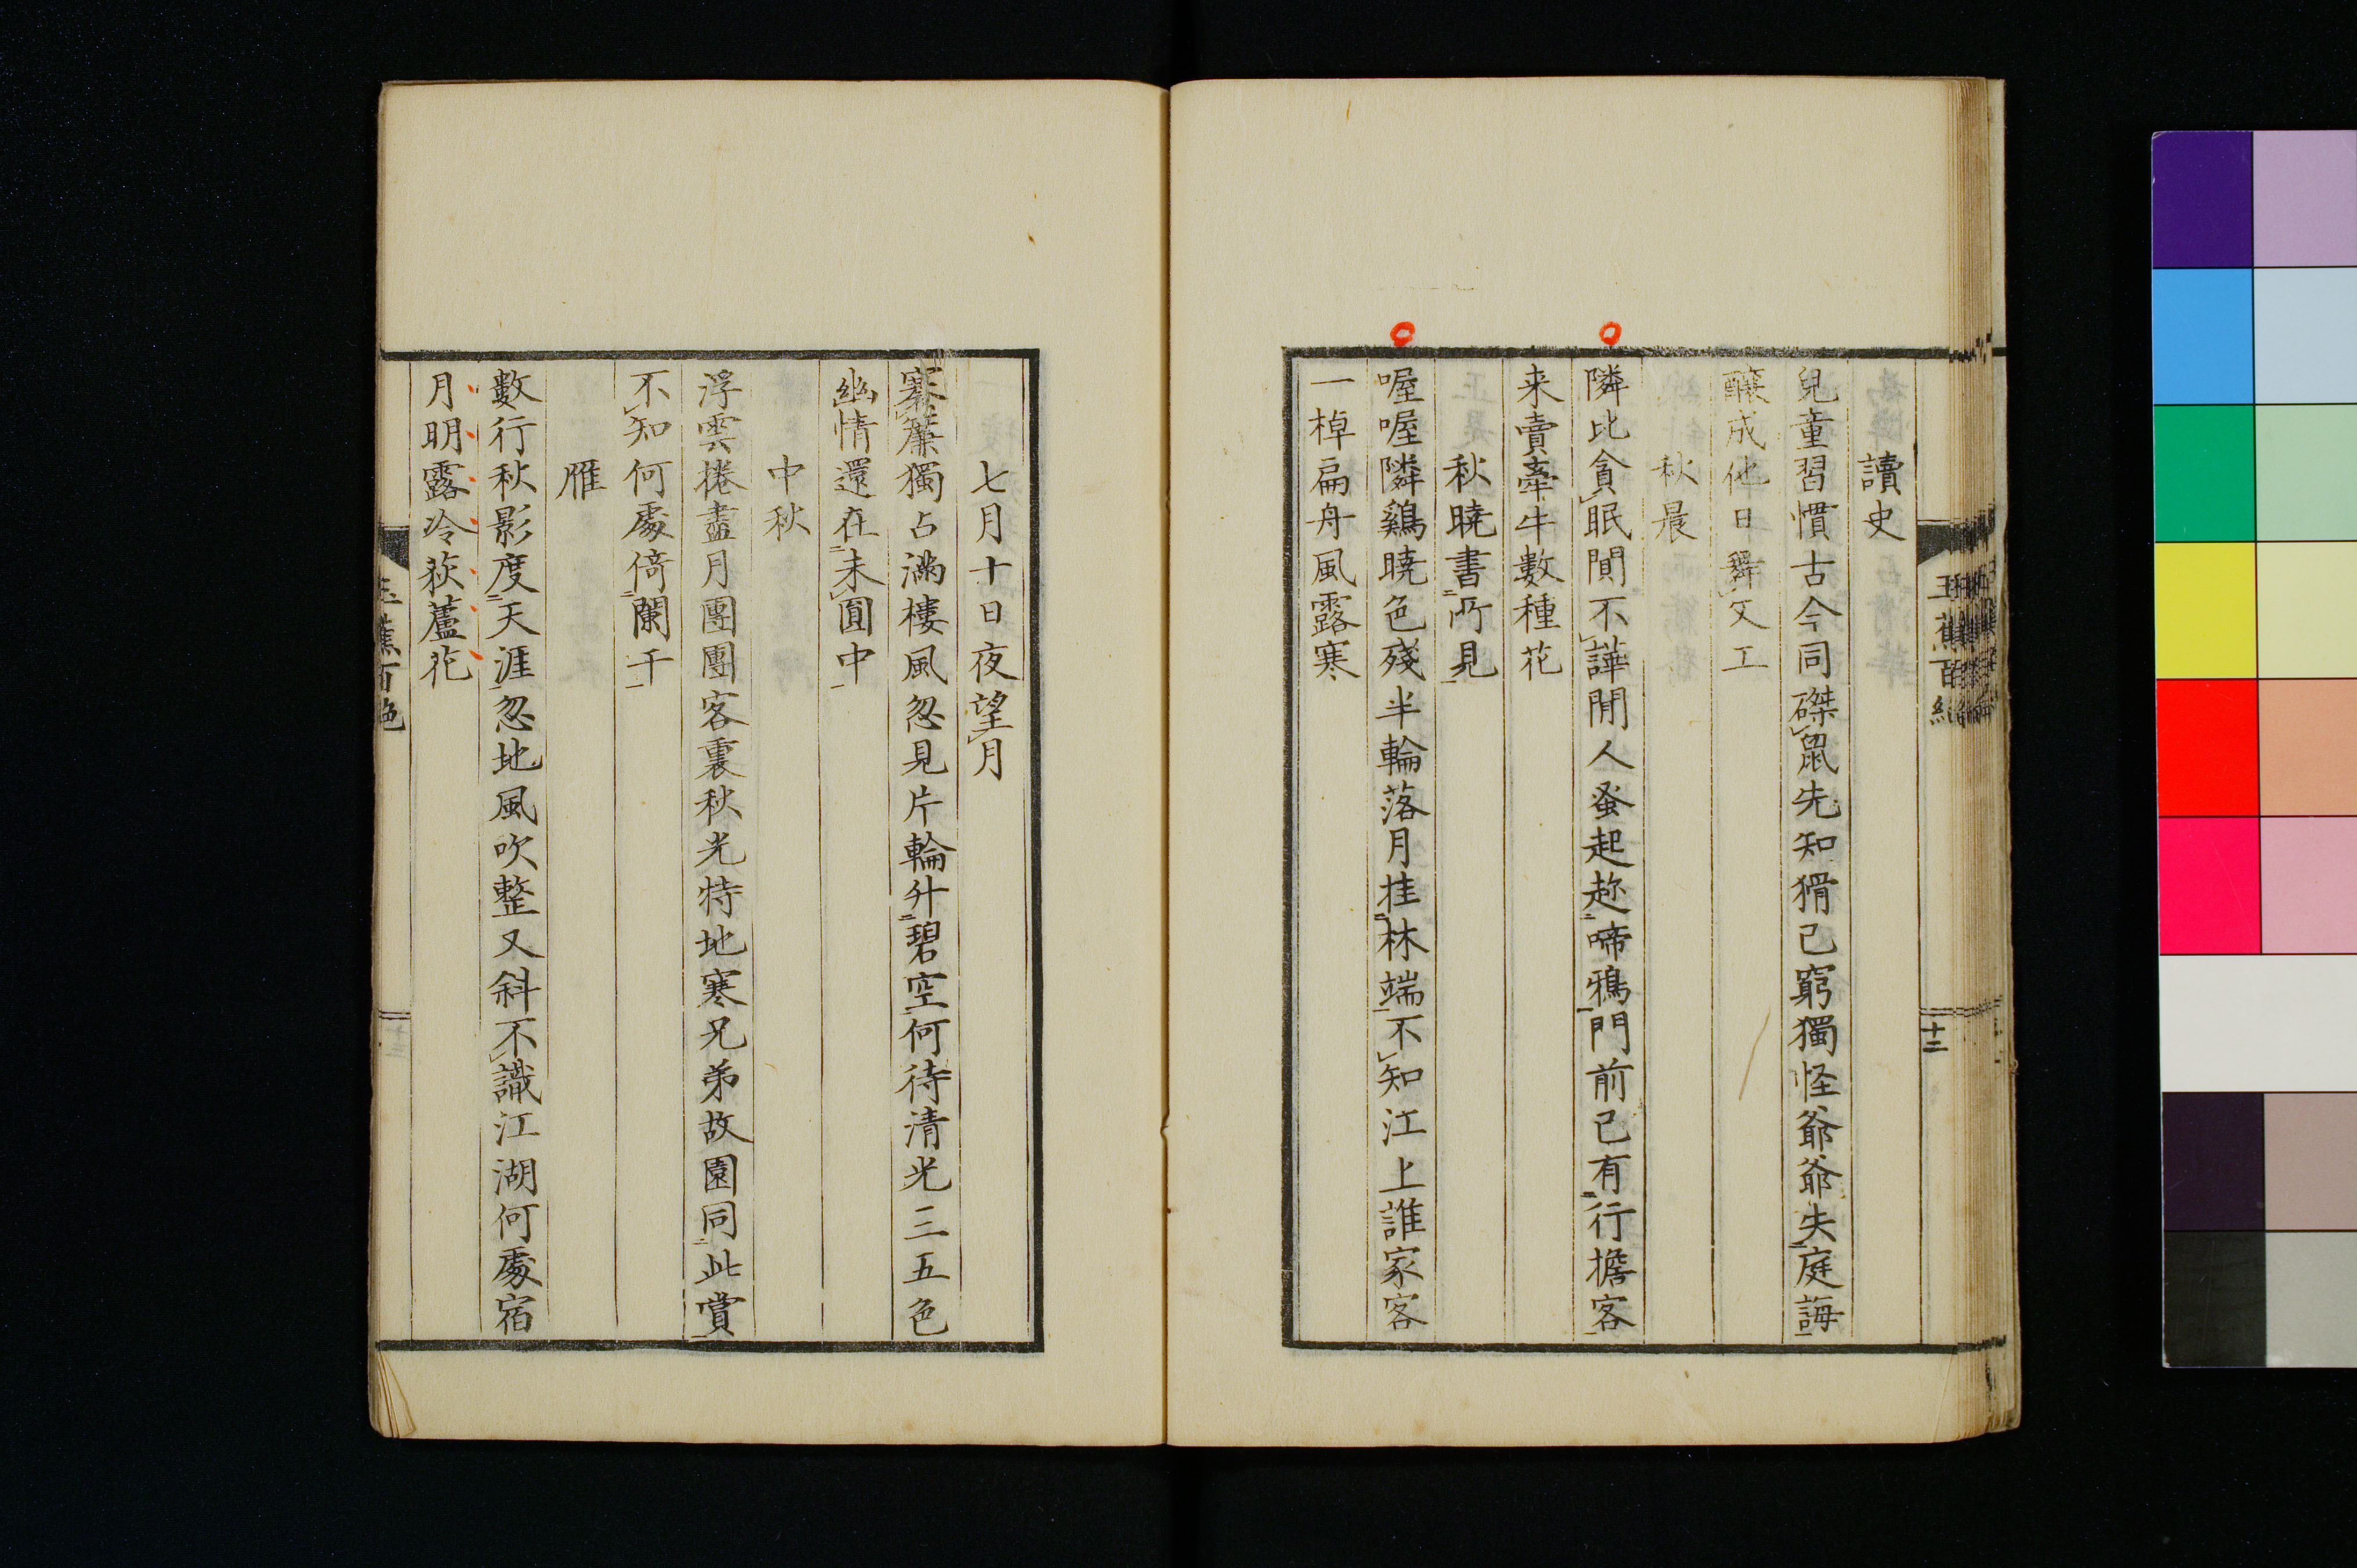 讀史
兒童習慣古今同磔鼠先知猾已窮獨怪爺爺失庭誨
釀成他日舞文工
秋晨
隣比貪眠閴不譁閒人蚤起趂啼鴉門前已有行擔客
来賣牽牛數種花
秋曉書所見
喔喔隣鷄曉色殘半輪落月挂林端不知江上誰家客
一棹扁舟風露寒
十二
七月十日夜望月
褰簾獨占滿樓風忽見片輪升碧空何待清光三五色
幽情還在未圓中
中秋
浮雲捲盡月團團客裏秋光特地寒兄弟故園同此賞
不知何處倚闌干
雁
數行秋影度天涯忽地風吹整又斜不識江湖何處宿
月明露冷荻蘆花